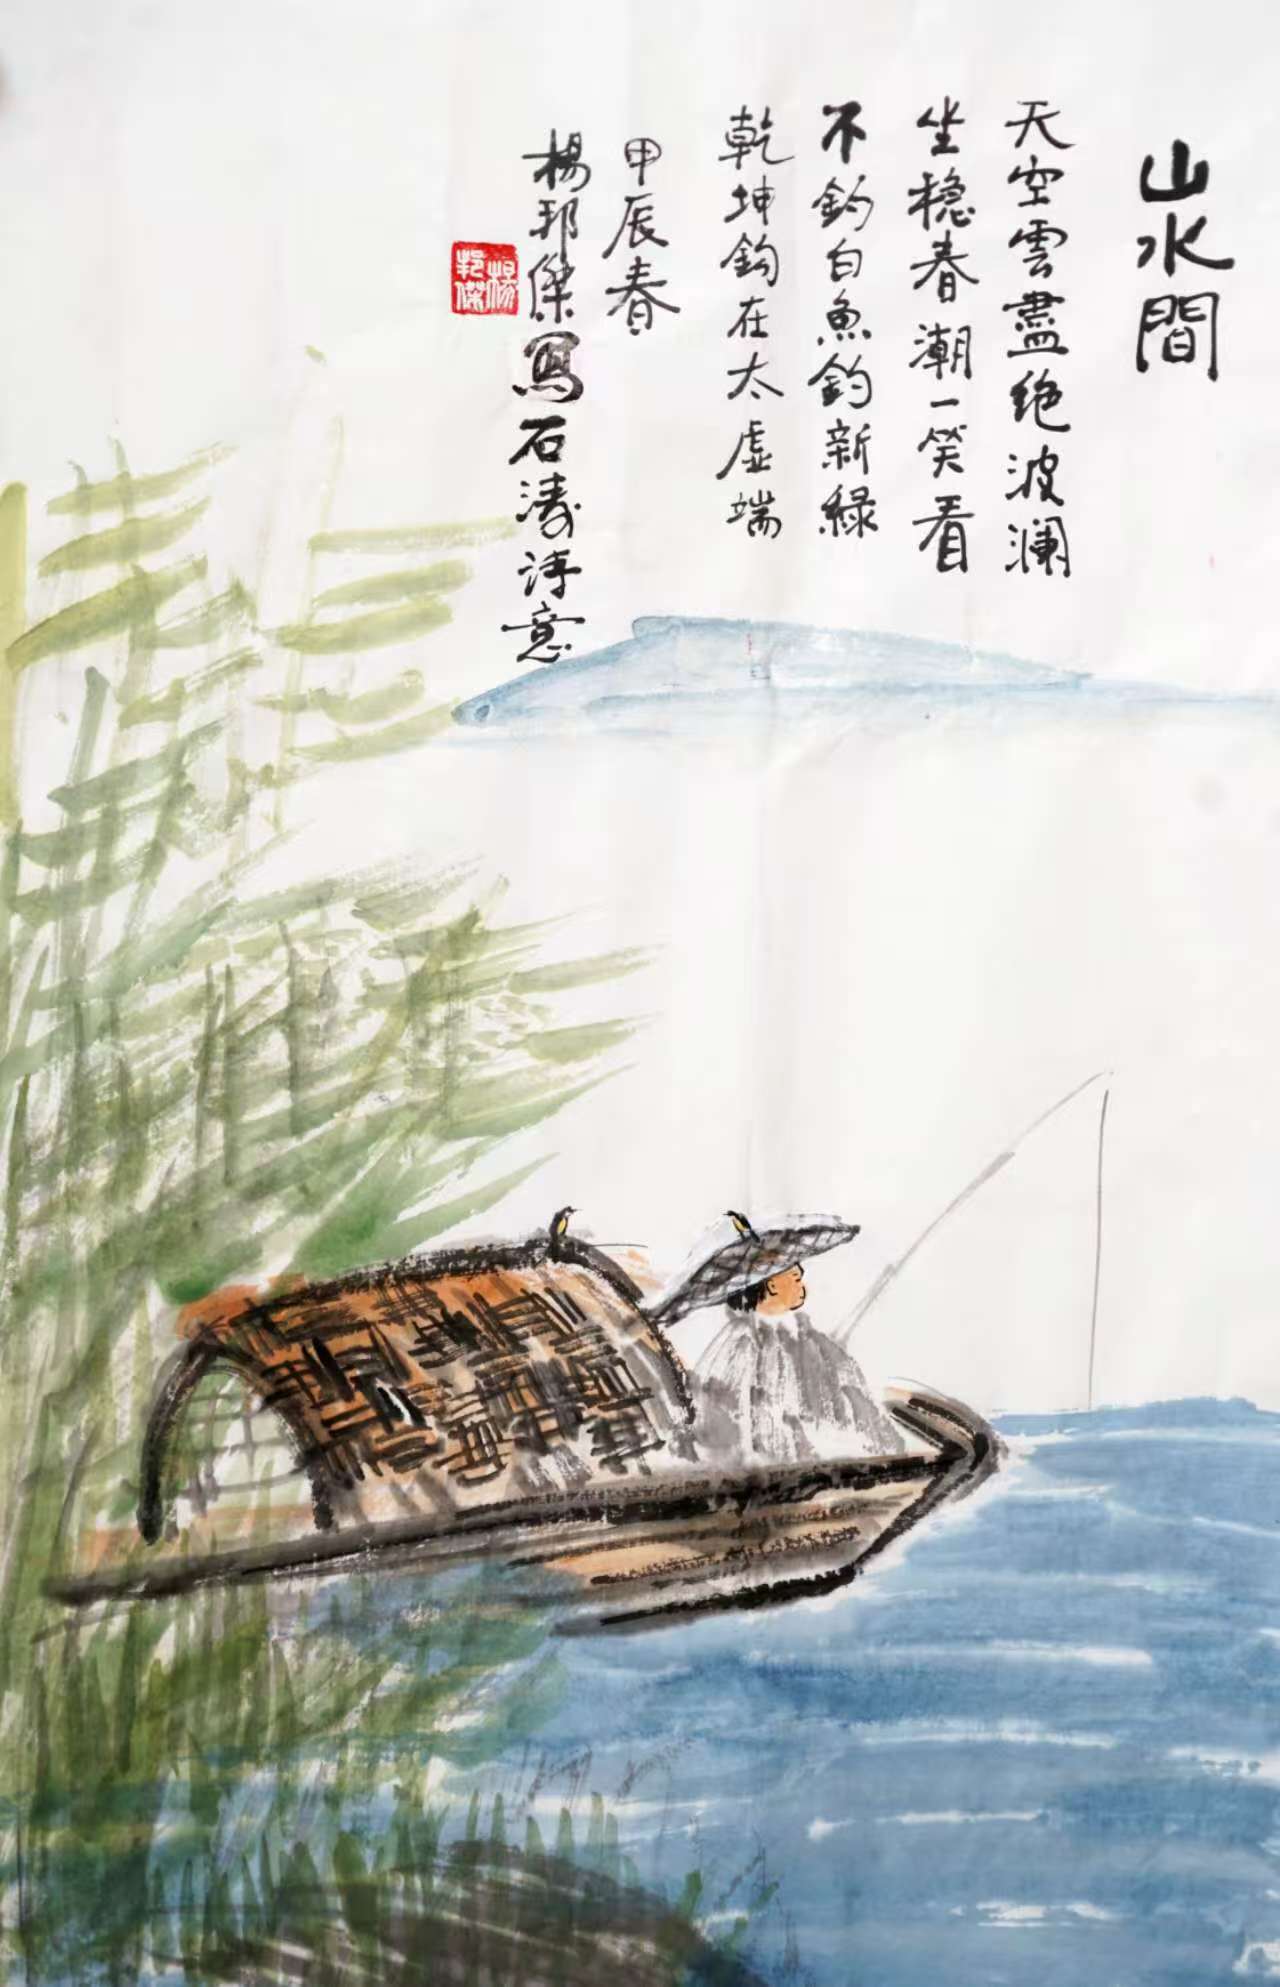 山水間
天空雲盡绝波澜
坐稳春潮一笑看
不釣白魚釣新緑
乾坤鈎在太虚端
甲辰春
楊邦傑寫石涛诗意
楊邦傑